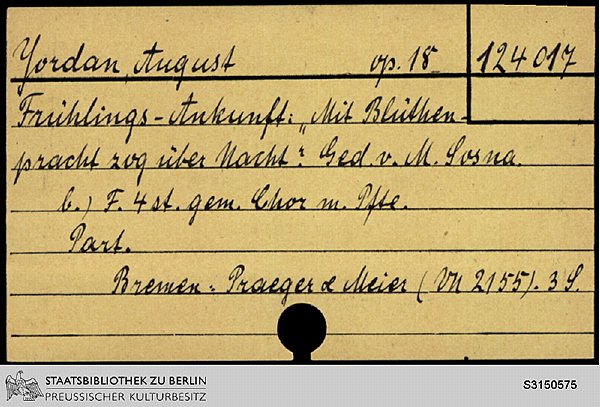 Jordan, August op. 18 124 017
Frühlings-Ankunft: „Mit Blüthen-
pracht zog über Nacht". Ged. v. M. Sosna.
b.) F. 4 st. gem. Chor m. Pfte.
Part.
Bremen: Praeger & Meier (VN 2155). 3 S.
STAATSBIBLIOTHEK ZU BERLIN
PREUSSISCHER KULTURBESITZ
S3150575